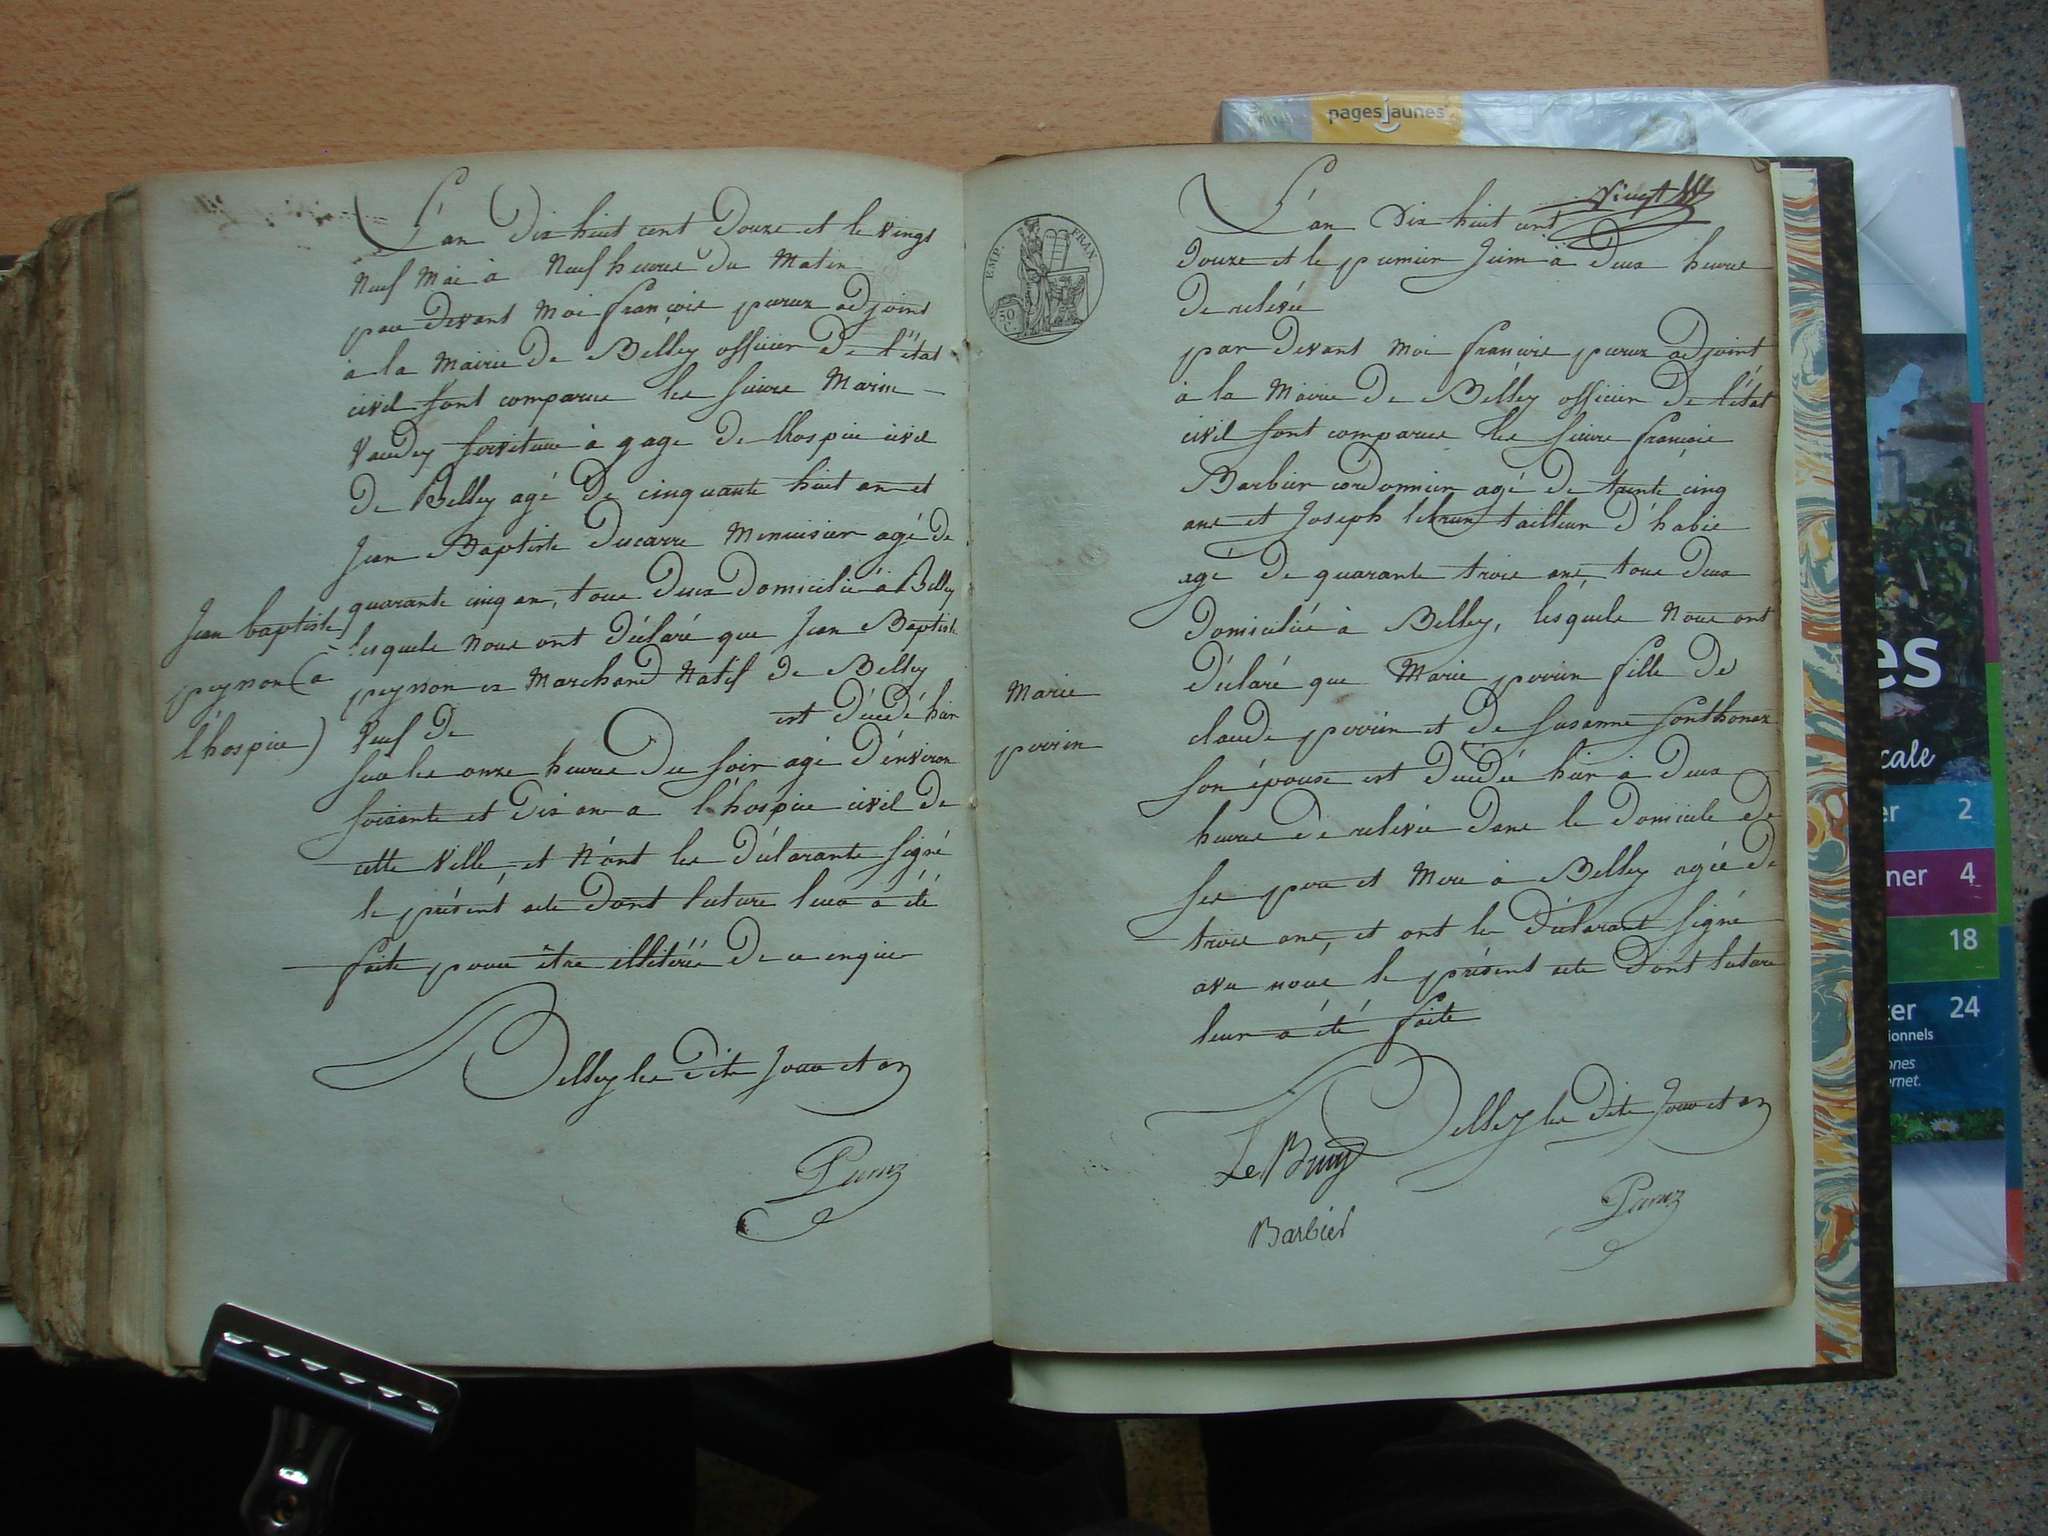 L'an Dix huit cent Douze et le vingt
Neuf Mai à Neuf heures du Matin
par devant moi françois parux adjoint
à la Mairie De Belley officier De l'état
civil sont comparus les sieurs Marin
Vaudey serviteur à gage De lhospice civil
De Belley agé De cinquante huit ans et
Jean Baptiste Ducarre Menuisier agé de
quarante cinq an, tous Deux Domicilié à Belley
lesquels Nous ont Déclaré que Jean Baptiste
peysson ex Marchand Natif de Belley
Veuf De est Décédé hier
sur les onze heures Du soir agé D'environ
soixante et Dix an a l'hospice civil De
cette Ville, et N'ont les Déclarants signé
le présent acte Dont lecture leur a été
faite pour être illitéré De ce enquis
Belley les Dits Jour et an
Parux
Jean baptiste
peysson (à
l'hospice)
vingt
L'an Dix huit cent
Douze et le premier Juin à Deux heures
De relevée
par Devant moi françois parux adjoint
à la Mairie De Belley officier De l'état
civil sont comparus les sieurs françois
Barbier cordonnier agé De trente cinq
ans et Joseph lebrun tailleur D'habis
agé De quarante trois ans, tous Deux
Domicilié à Belley, lesquels Nous ont
Déclaré que Marie perrin fille De
claude perrin et de Susanne Sonthonax
son épouse est Décédée hier à Deux
heures De relevée Dans le Domicile De
ses pere et Mere à Belley agée De
trois ans, et ont les Déclarant signé
avec nous le présent acte Dont lecture
leur a été faite
Belley les Dits Jour et an
Le Brun
Barbier
Parux
Marie
perrin
EMP. FRAN.
50 C.
pagesjaunes
es
cale
er 2
ner 4
18
ter 24
ionnels
ones
ernet.